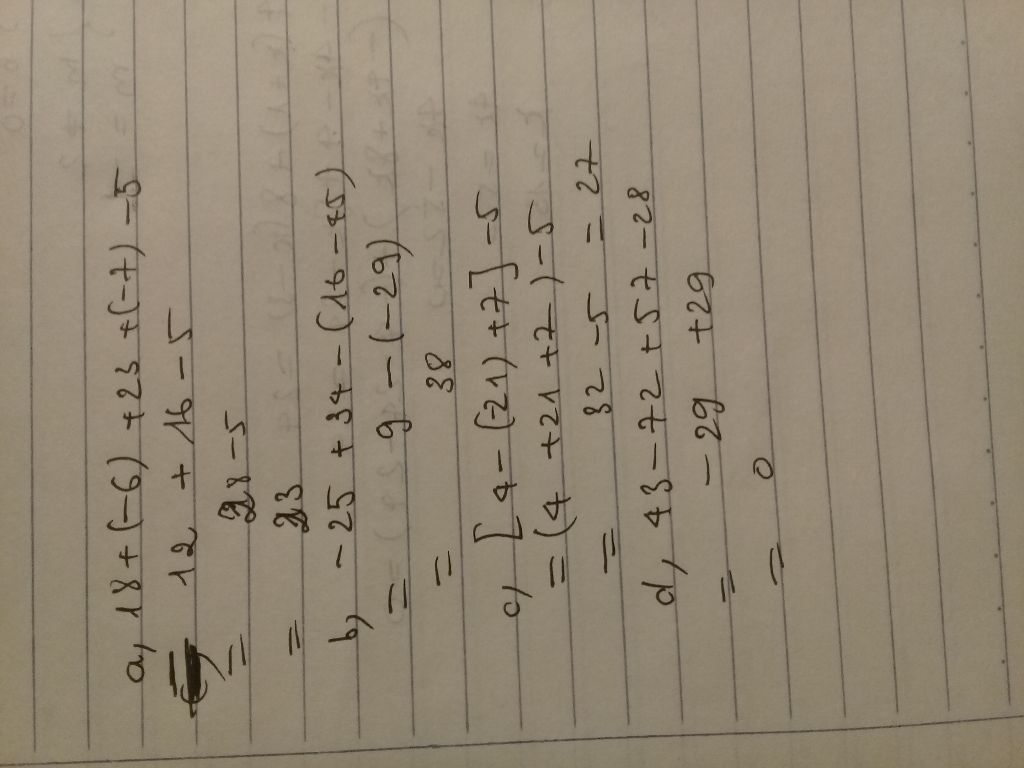 a, 18 + (-6) + 23 + (-7) - 5
= 12 + 16 - 5
= 28 - 5
= 23
b, - 25 + 34 - (16 - 45)
= 9 - (-29)
= 38
c, [4 - (-21) + 7] - 5
= (4 + 21 + 7) - 5
= 32 - 5 = 27
d, 43 - 72 + 57 - 28
= - 29 + 29
= 0